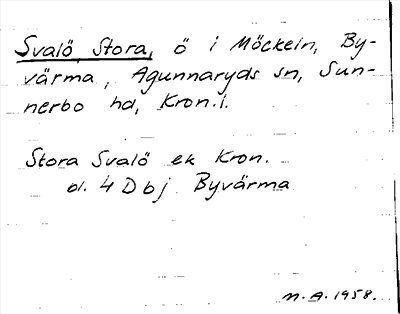 Svalö, Stora, ö i Möckeln, By-
värma, Agunnaryds sn, Sun-
nerbo hd, Kron.l.
Stora Svalö ek Kron.
bl. 4 D b j Byvärma
M.A. 1958.